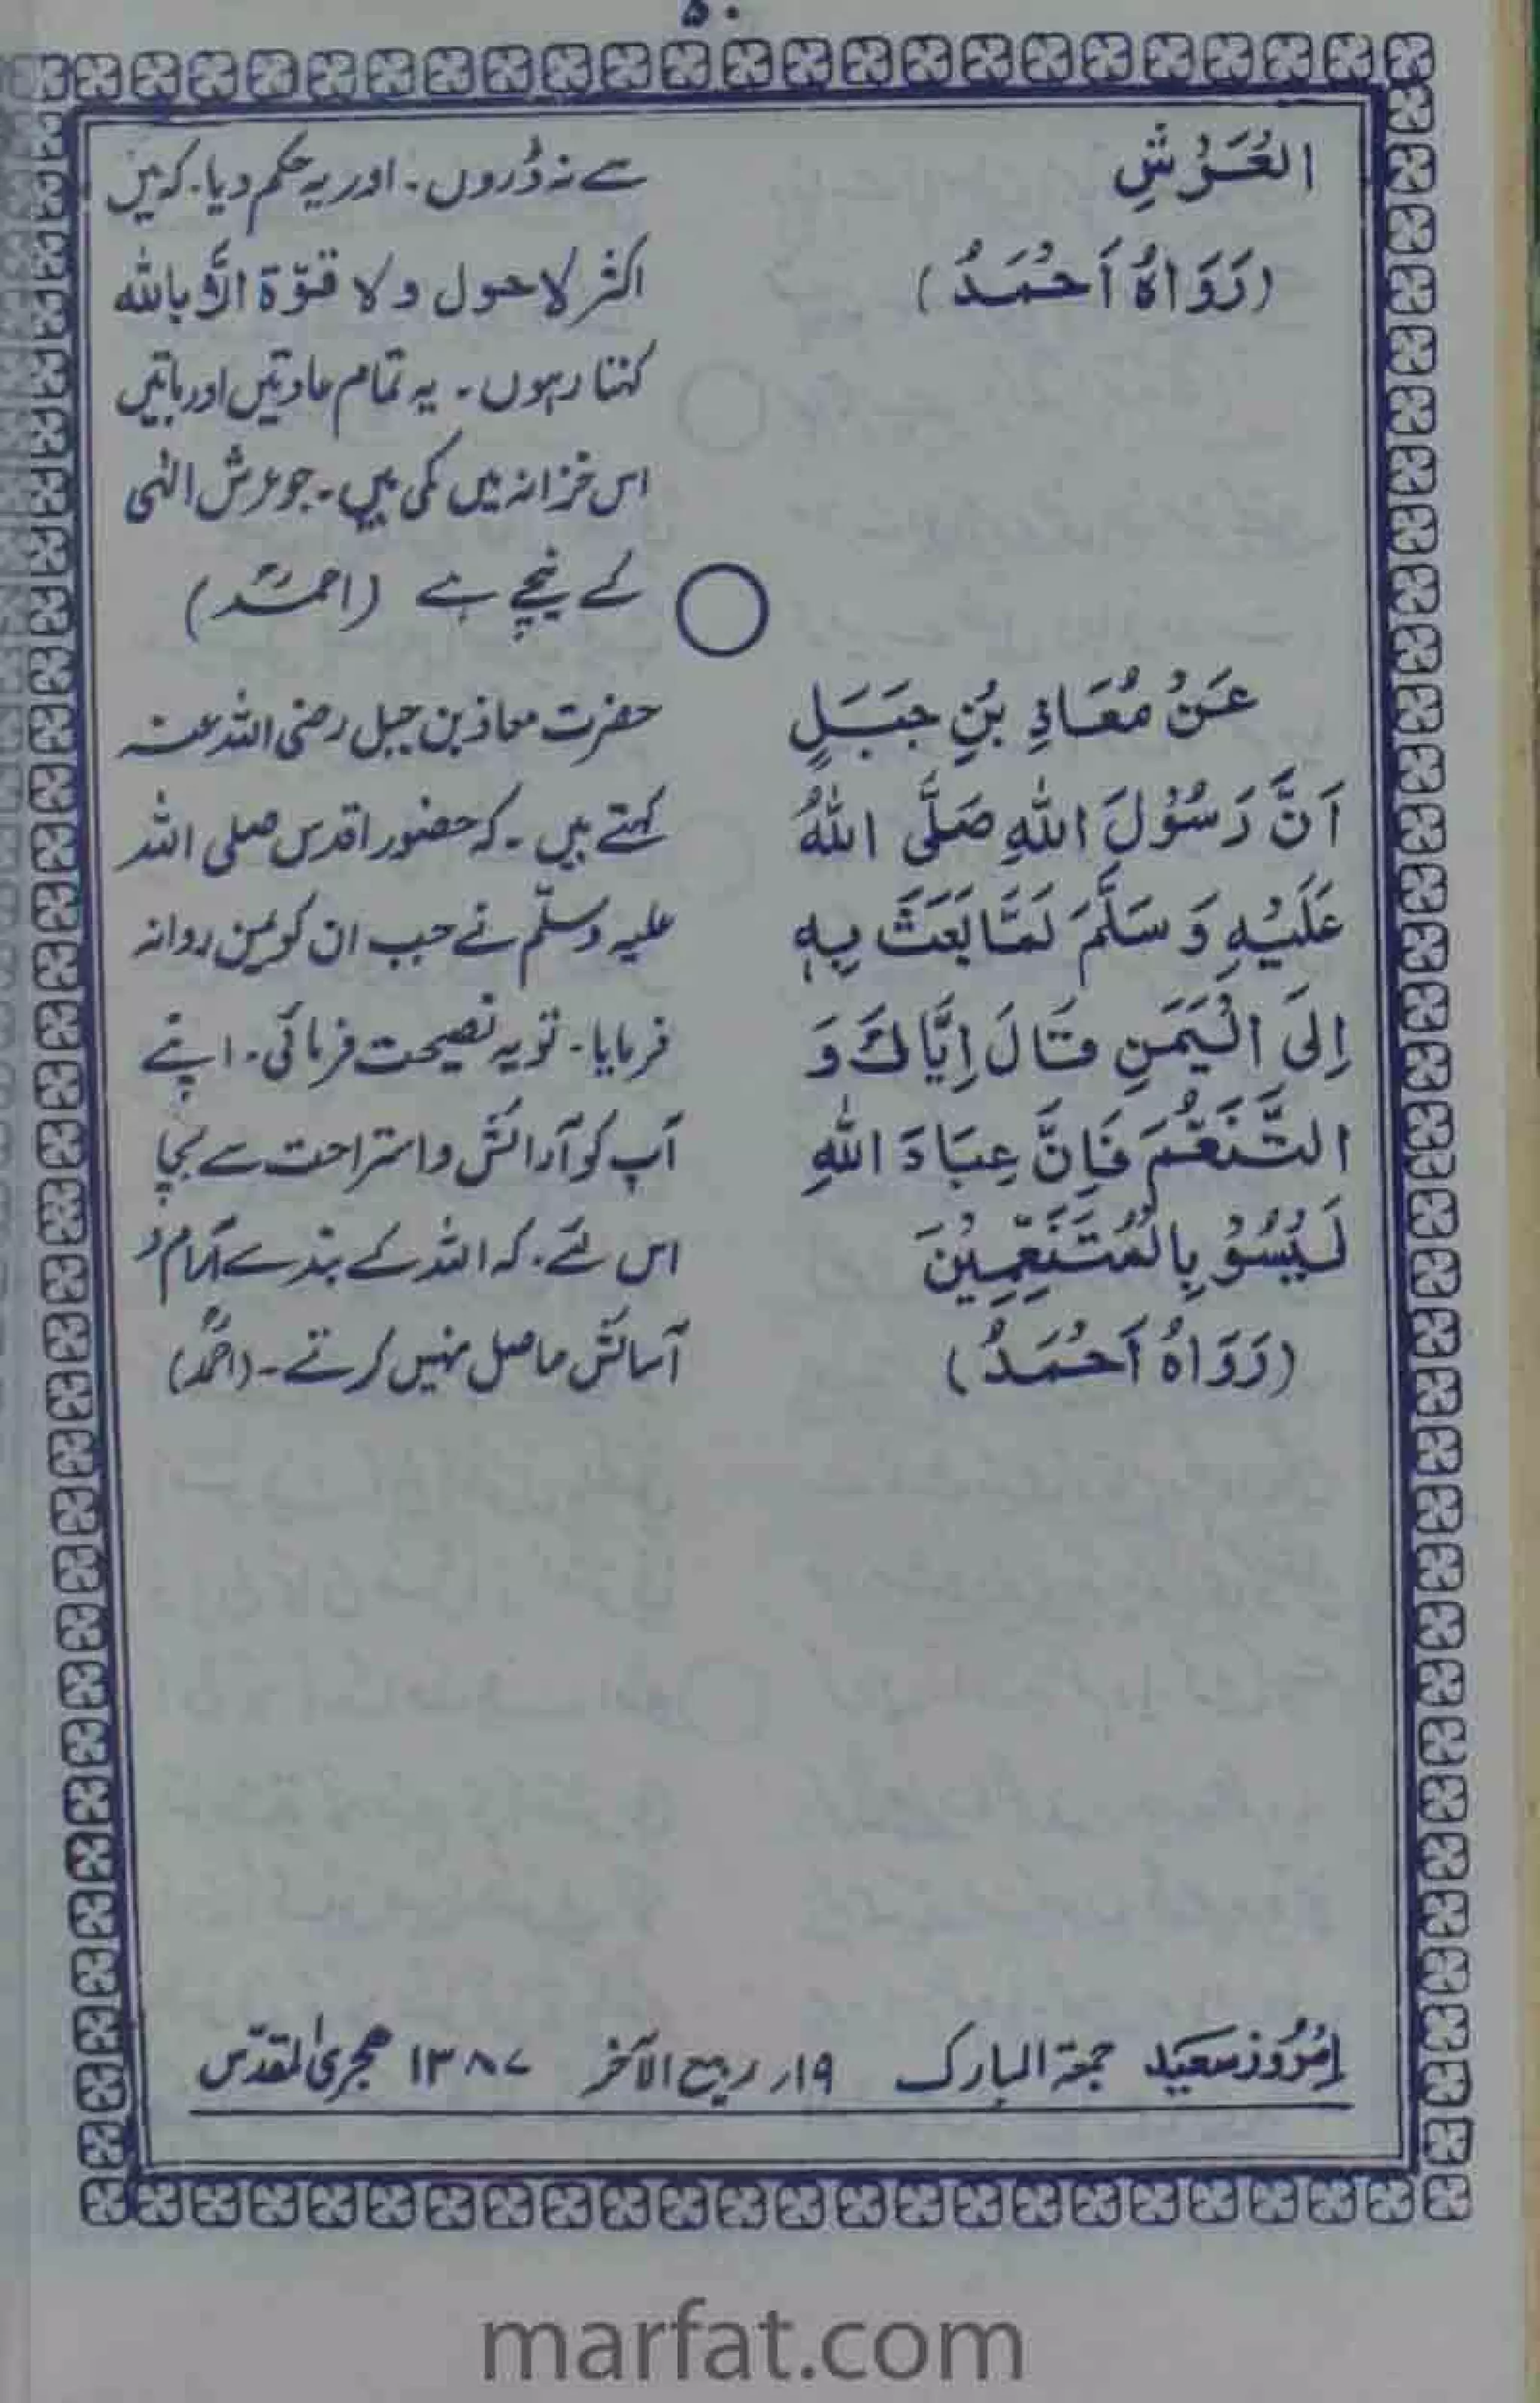 ۵۰
الْعَرْشِ
(رَوَاهُ اَحْمَدُ)
سے نہ ڈروں ۔ اور یہ حکم دیا ۔ کہ میں
اکثر لاحول ولا قوّۃ الّا باللہ
کہتا رہوں ۔ یہ تمام عادتیں اور باتیں
اس خزانہ میں کی ہیں ۔ جو عرش الٰہی
کے نیچے ہے (احمدؒ)
عَنْ مُعَاذِ بْنِ جَبَلٍ
اَنَّ رَسُوْلَ اللهِ صَلَّى اللهُ
عَلَيْهِ وَ سَلَّمَ لَمَّا بَعَثَ بِهٖ
اِلَى الْيَمَنِ قَالَ اِيَّاكَ وَ
التَّنَعُّمَ فَاِنَّ عِبَادَ اللهِ
لَيْسُوْ بِالْمُتَنَعِّمِيْنَ
(رَوَاهُ اَحْمَدُ)
حضرت معاذ بن جبل رضی اللہ عنہ
کہتے ہیں ۔ کہ حضور اقدس صلی اللہ
علیہ وسلّم نے جب ان کو یمن روانہ
فرمایا ۔ تو یہ نصیحت فرمائی ۔ اپنے
آپ کو آرائش و استراحت سے بچا
اس لئے ۔ کہ اللہ کے بندے آرام و
آسائش حاصل نہیں کرتے ۔ (احمدؒ)
اِمْرُوز سَعِید جمعۃ المبارک ۱۹ر ربیع الآخر ۱۳۸۷ ھجری المقدّس
marfat.com